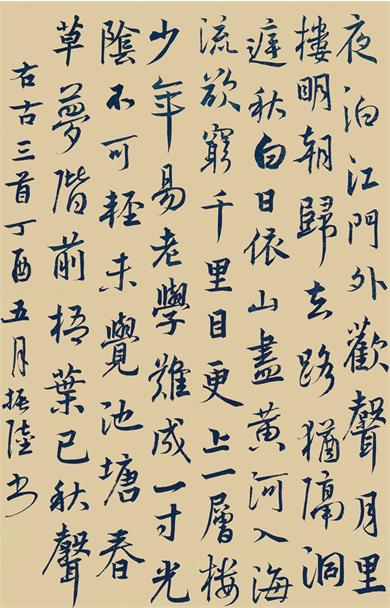 夜泊江門外歡聲月里
樓明朝歸去路猶隔洞
庭秋白日依山盡黃河入海
流欲窮千里目更上一層楼
少年易老學難成一寸光
陰不可輕未覺池塘春
草夢階前梧葉已秋聲
右古三首丁酉五月振陸书